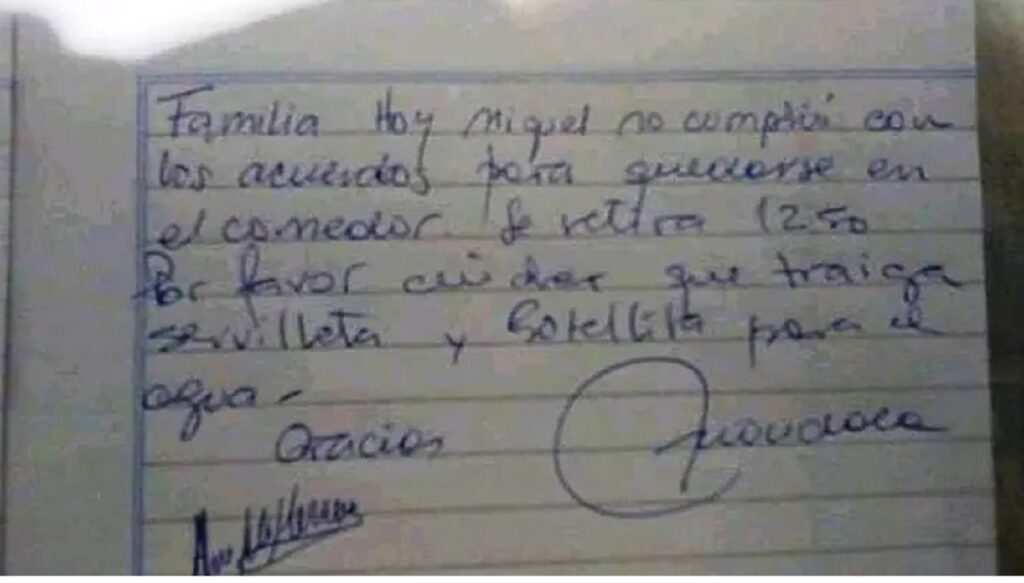 Familia Hoy Miguel no cumplió con
los acuerdos para quedarse en
el comedor. Se retira 1250
Por favor cuidar que traiga
servilleta y botellita para el
agua.-
Gracias